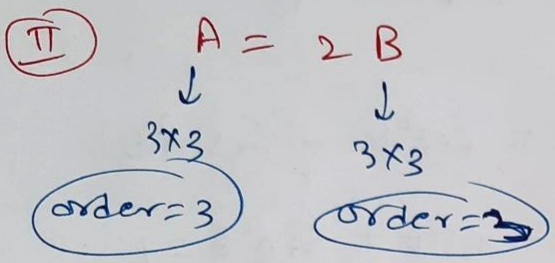 II A = 2 B
↓ ↓
3×3 3×3
order=3 order=3